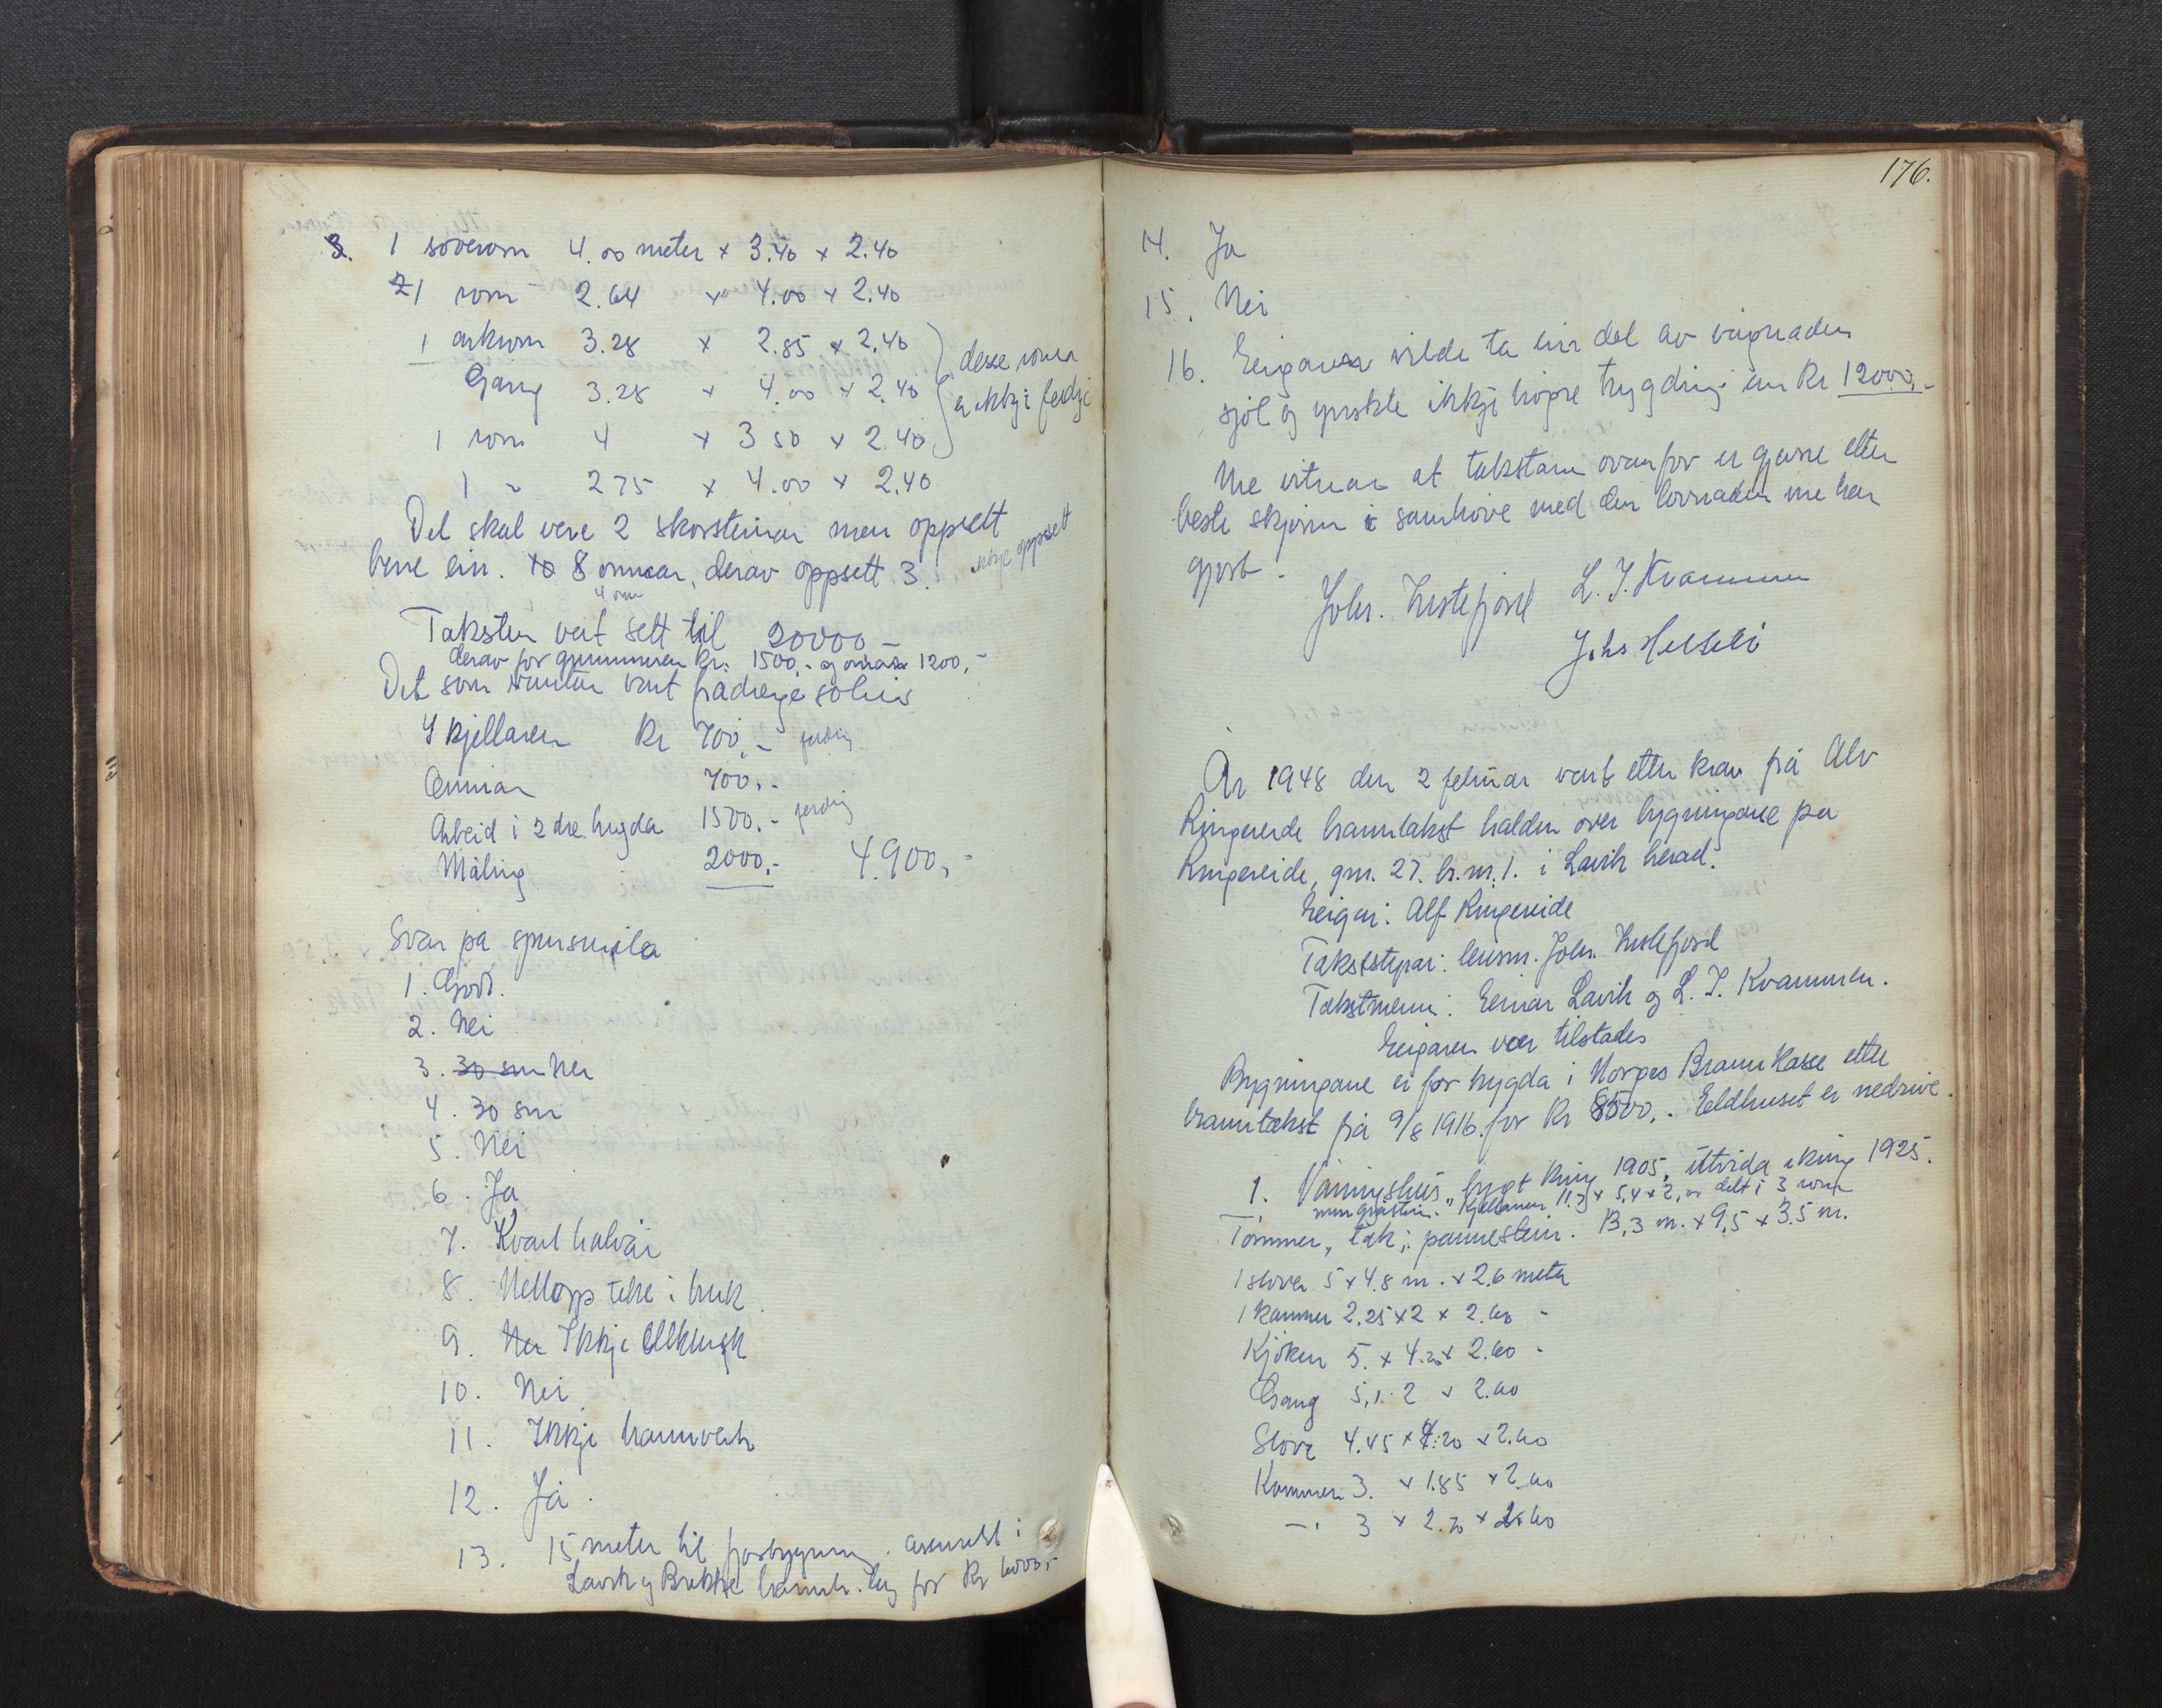 3. 1 soverom 4.00 meter x 3.40 x 2.40
1 rom 2.64 x 4.00 x 2.40
1 arkrom 3.28 x 2.85 x 2.40
Gang 3.28 x 4.00 x 2.40
desse roma
er ikkji ferdji
1 rom 4 x 3 50 x 2.40
1 " 275 x 4.00 x 2.40
Det skal vere 2 skorsteinar men oppsett
berre ein. 8 omnar, derav oppsett 3. ikkje oppsett
4 omn
Taksten vert sett til 20000 -
derav for grunnmuren kr. 1500,- og omnar 1200,-
Det som vantar vart frádregje soleis
I kjellaren Kr 700,- ferdig
Omnar 700,-
Arbeid i 2dre högda 1500,- ferdig
Måling 2000,- 4.900,-
Svar på spursmåla
1. God.
2. Nei
3. 30 sm Nei
4. 30 sm
5. Nei
6. Ja
7. Kvart halvår
8. Nettopp teke i bruk
9. Nei Ikkje elektrisk
10. Nei
11. Ikkje brannverk
12. Ja.
13. 15 meter til fjosbygning. assurert i
Lavik og Brekke brannk. lag for Kr 6000,-
176.
14. Ja
15. Nei
16. Eigaren vilde ta ein del av vågnaden
sjöl og ynskte ikkje högre trygding enn Kr 12000,-
Me vitnar at takstane ovanfor er gjevne etter
beste skjönn i samhöve med den lovnaden me har
gjort.
Johs. Hestefjord L. I. Kvammen
Johs Helsets
År 1948 den 2 februar vart etter krav frå Alv
Ringereide branntakst halden over bygningane på
Ringereide, gnr. 27. br.nr. 1. i Lavik herad.
Eigar: Alf Ringereide
Takststyrar: lensm. Johs. Hestefjord
Takstmenn: Einar Lavik og L. I. Kvammen.
Eigaren var tilstades
Bygningane er för trygda i Norges Brannkasse etter
branntakst frå 9/8 1916 for Kr 8500,-. Eldhuset er nedrive.
1. Våningshus, bygt kring 1905, utvida ikring 1925.
mur gråstein. Kjellaren 11.3 x 5,4 x 2, er delt i 3 rom
Tömmer, tak: pannestein. 13,3 m. x 9,5 x 3.5 m.
1 stova 5 x 4.8 m. x 2.6 meter
1 kammer 2.25 x 2 x 2.60 -
Kjöken 5. x 4.20 x 2.60 -
Gang 5,1. 2 x 2.60
Stova 4.45 x 4.20 x 2.60
Kammer 3. x 1.85 x 2.60
-" 3 x 2.70 x 2.60